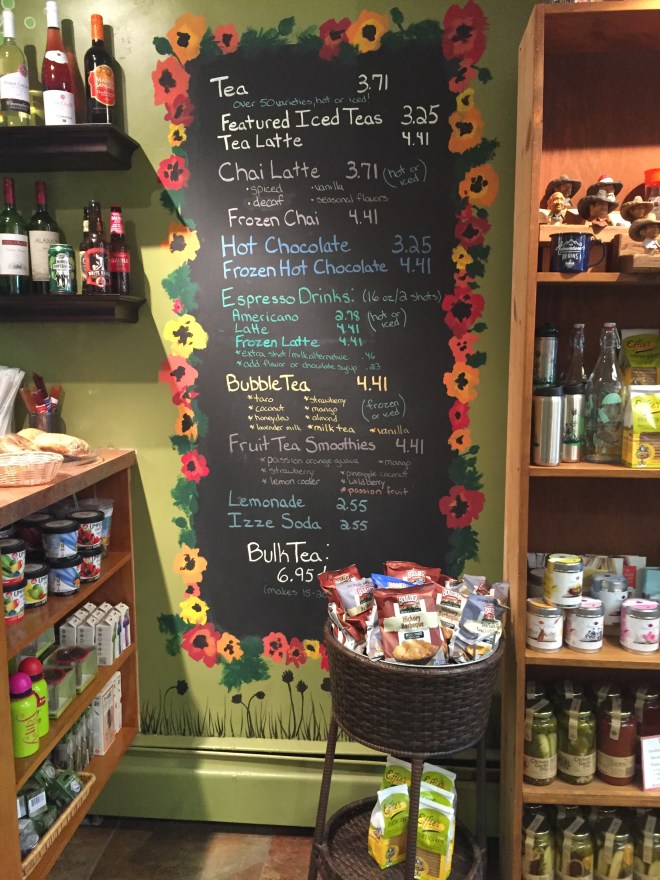 Tea 3.71
over 50 varieties, hot or iced!
Featured Iced Teas 3.25
Tea Latte 4.41
Chai Latte 3.71 (hot or iced)
• spiced • vanilla
• decaf • seasonal flavors
Frozen Chai 4.41
Hot Chocolate 3.25
Frozen Hot Chocolate 4.41
Espresso Drinks: (16 oz/2 shots)
Americano 2.78 (hot or iced)
Latte 4.41
Frozen Latte 4.41
* extra shot/milk alternative .46
* add flavor or chocolate syrup .23
Bubble Tea 4.41
* taro * strawberry
* coconut * mango (frozen or iced)
* honeydew * almond
* lavender milk * milk tea * vanilla
Fruit Tea Smoothies 4.41
* passion orange guava * mango
* strawberry * pineapple coconut
* lemon cooler * wildberry
* passion fruit
Lemonade 2.55
Izze Soda 2.55
Bulk Tea:
6.95
(makes 15-2
Hickory